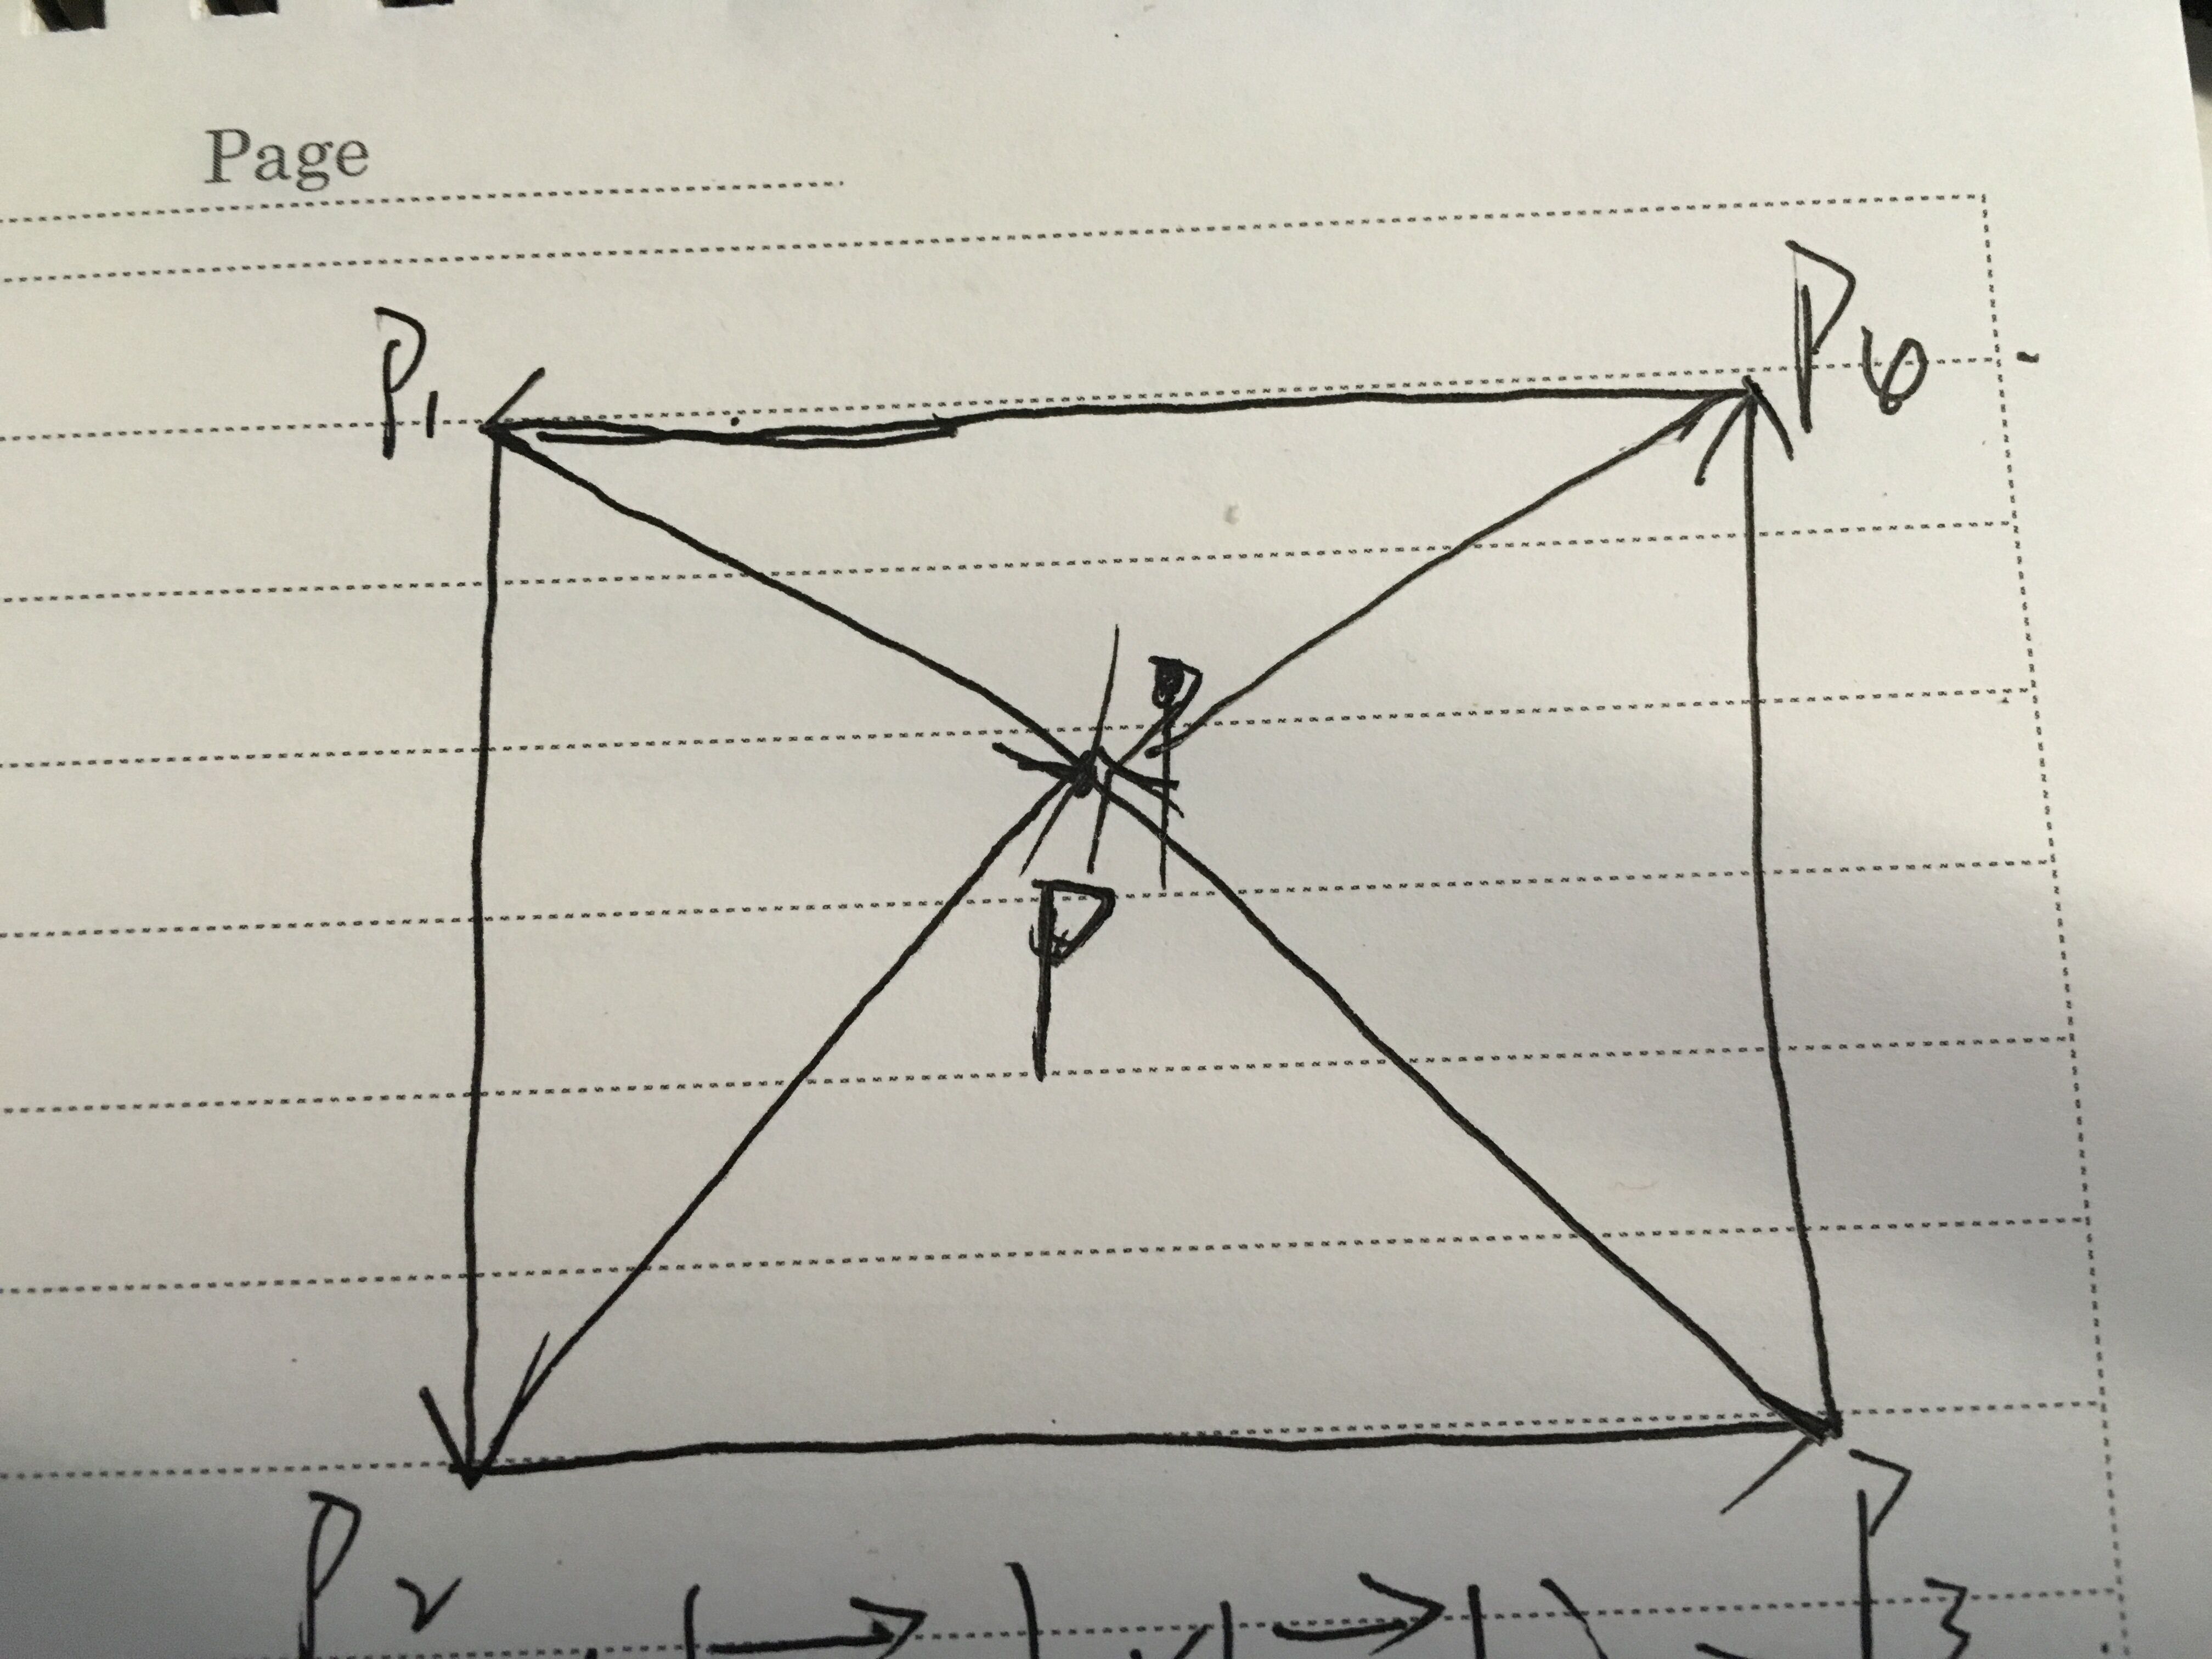 Page
P1
P6
P
P2
P3